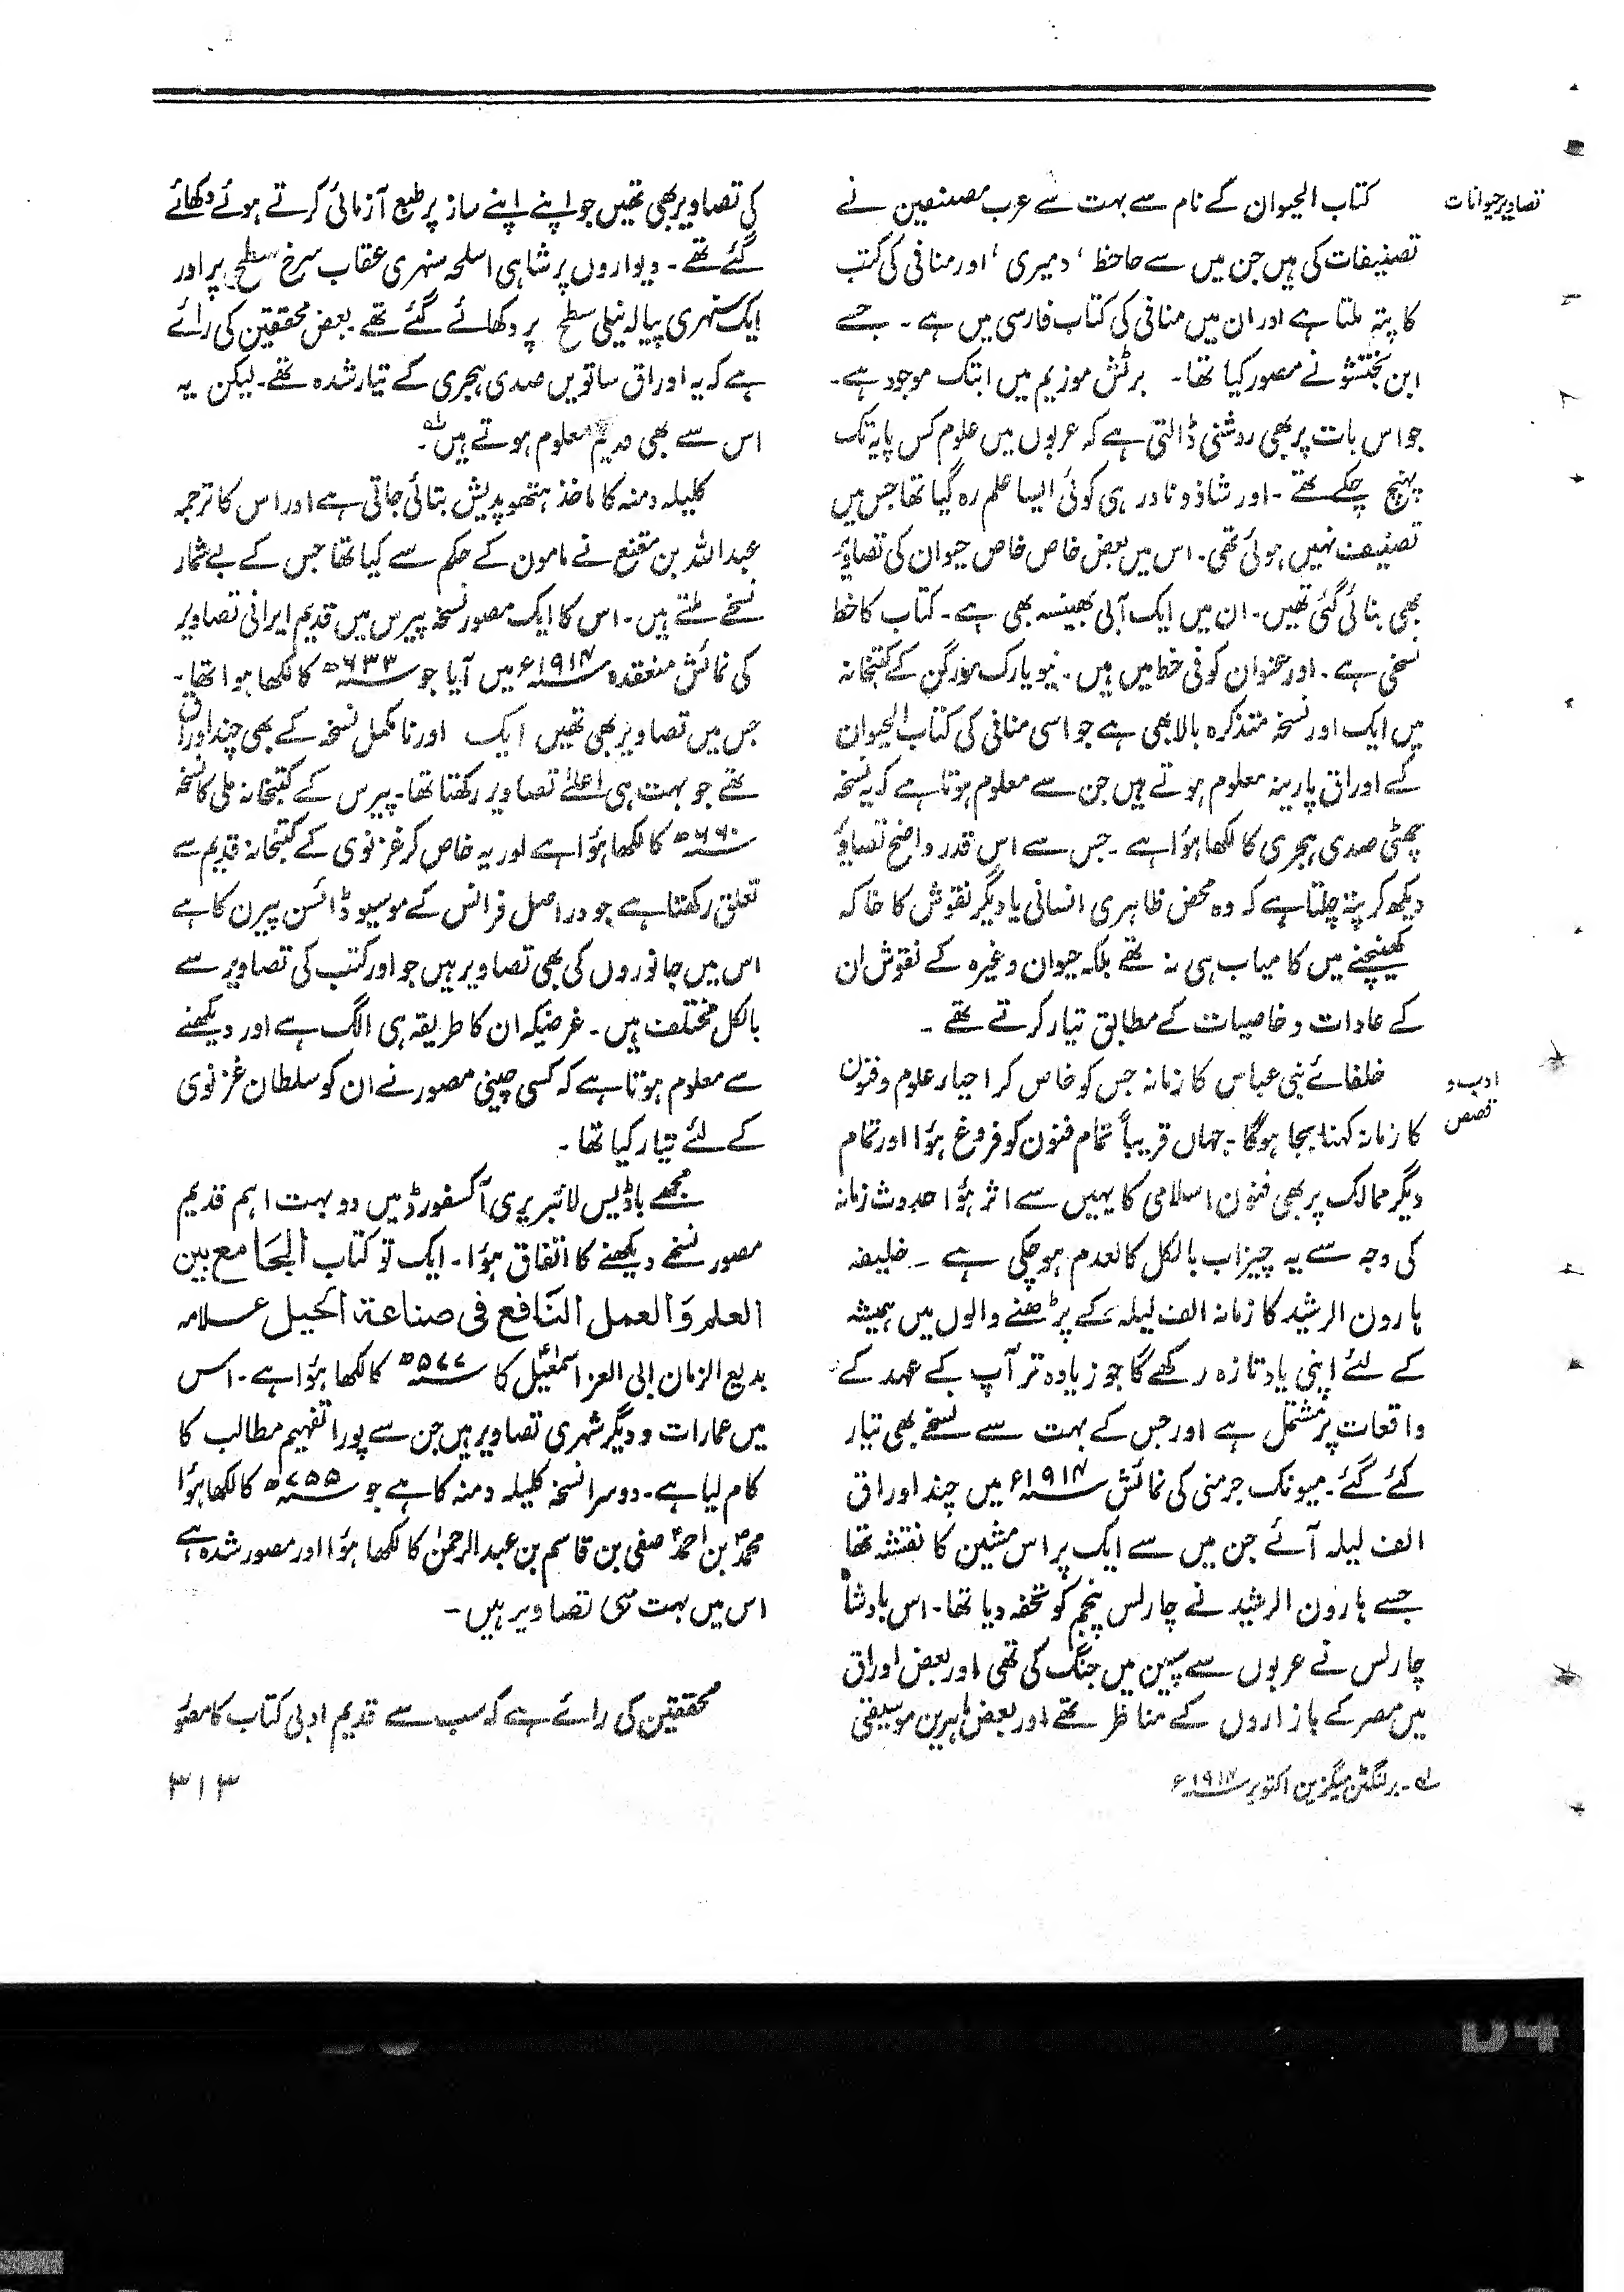 تصاویر حیوانات
کتاب الحیوان کے نام سے بہت سے عرب مصنفین نے
تصنیفات کی ہیں جن میں سے حاحظ ، دمیری ، اور منافی کی کتب
کا پتہ ملتا ہے اور ان میں منافی کی کتاب فارسی میں ہے ۔ جسے
ابن بختشو نے مصور کیا تھا ۔ برٹش موزیم میں ابتک موجود ہے ۔
جو اس بات پر بھی روشنی ڈالتی ہے کہ عربوں میں علوم کس پایہ تک
پہنچ چکے تھے ۔ اور شاذ و نادر ہی کوئی ایسا علم رہ گیا تھا جس میں
تصنیف نہیں ہوئی تھی ۔ اس میں بعض خاص خاص حیوان کی تصاویر
بھی بنائی گئی تھیں ۔ ان میں ایک آبی بھینسہ بھی ہے ۔ کتاب کا خط
نسخی ہے ۔ اور عنوان کوفی خط میں ہیں ۔ نیویارک مورگن کے کتبخانہ
میں ایک اور نسخہ متذکرہ بالا بھی ہے جو اسی منافی کی کتاب الحیوان
کے اوراق پارینہ معلوم ہوتے ہیں جن سے معلوم ہوتا ہے کہ یہ نسخہ
چھٹی صدی ہجری کا لکھا ہؤا ہے ۔ جس سے اس قدر واضح تصاویر
دیکھ کر پتہ چلتا ہے کہ وہ محض ظاہری انسانی یا دیگر نقوش کا خاکہ
کھینچنے میں کامیاب ہی نہ تھے بلکہ حیوان وغیرہ کے نقوش ان
کے عادات و خاصیات کے مطابق تیار کرتے تھے ۔
ادب و
قصص
خلفائے بنی عباس کا زمانہ جس کو خاص کر احیار علوم و فنون
کا زمانہ کہنا بجا ہوگا ۔ جہاں قریباً تمام فنون کو فروغ ہؤا اور تمام
دیگر ممالک پر بھی فنون اسلامی کا یہیں سے اثر ہؤا حدوث زمانہ
کی وجہ سے یہ چیز اب بالکل کالعدم ہو چکی ہے ۔ خلیفہ
ہارون الرشید کا زمانہ الف لیلہ کے پڑھنے والوں میں ہمیشہ
کے لئے اپنی یاد تازہ رکھے گا جو زیادہ تر آپ کے عہد کے
واقعات پر مشتمل ہے اور جس کے بہت سے نسخے بھی تیار
کئے گئے ۔ میونک جرمنی کی نمائش ۱۹۱۲ء میں چند اوراق
الف لیلہ آئے جن میں سے ایک پر اس مشین کا نقشہ تھا
جسے ہارون الرشید نے چارلس پنجم کو تحفہ دیا تھا ۔ اس بادشاہ
چارلس نے عربوں سے سپین میں جنگ کی تھی اور بعض اوراق
میں مصر کے بازاروں کے مناظر تھے اور بعض ماہرین موسیقی
لہ ۔ برلنگٹن میگزین اکتوبر ۱۹۱۲ء
کی تصاویر بھی تھیں جو اپنے اپنے ساز پر طبع آزمائی کرتے ہوئے دکھائے
گئے تھے ۔ دیواروں پر شاہی اسلحہ سنہری عقاب سرخ سطح پر اور
ایک سنہری پیالہ نیلی سطح پر دکھائے گئے تھے ۔ بعض محققین کی رائے
ہے کہ یہ اوراق ساتویں صدی ہجری کے تیار شدہ تھے ۔ لیکن یہ
اس سے بھی قدیم معلوم ہوتے ہیں لہ ۔
کلیلہ دمنہ کا ماخذ ہتھوپدیش بتائی جاتی ہے اور اس کا ترجمہ
عبداللہ بن مقنع نے مامون کے حکم سے کیا تھا جس کے بے شمار
نسخے ملتے ہیں ۔ اس کا ایک مصور نسخہ پیرس میں قدیم ایرانی تصاویر
کی نمائش منعقدہ ۱۹۱۲ء میں آیا جو ۶۳۳ھ کا لکھا ہوا تھا ۔
جس میں تصاویر بھی تھیں ایک اور نامکمل نسخہ کے بھی چند اوراق
تھے جو بہت ہی اعلےٰ تصاویر رکھتا تھا ۔ پیرس کے کتبخانہ ملی کا نسخہ
۶۶۰ھ کا لکھا ہؤا ہے اور یہ خاص کر غزنوی کے کتبخانہ قدیم سے
تعلق رکھتا ہے جو دراصل فرانس کے موسیو ڈائسن پیرن کا ہے
اس میں جانوروں کی بھی تصاویر ہیں جو اور کتب کی تصاویر سے
بالکل مختلف ہیں ۔ غرضیکہ ان کا طریقہ ہی الگ ہے اور دیکھنے
سے معلوم ہوتا ہے کہ کسی چینی مصور نے ان کو سلطان غزنوی
کے لئے تیار کیا تھا ۔
مجھے باڈیس لائبریری آکسفورڈ میں دو بہت اہم قدیم
مصور نسخے دیکھنے کا اتفاق ہؤا ۔ ایک تو کتاب الجامع بین
العلم وَ العمل النافع فی صناعة الحیل علامہ
بدیع الزمان ابی العز اسمٰعیل کا ۵۷۷ھ کا لکھا ہؤا ہے ۔ اس
میں عمارات و دیگر شہری تصاویر ہیں جن سے پورا تفہیم مطالب کا
کام لیا ہے ۔ دوسرا نسخہ کلیلہ دمنہ کا ہے جو ۷۵۵ھ کا لکھا ہؤا
محمد بن احمد صفی بن قاسم بن عبدالرحمٰن کا لکھا ہؤا اور مصور شدہ ہے
اس میں بہت سی تصاویر ہیں ۔
محققین کی رائے ہے کہ سب سے قدیم ادبی کتاب کا مصور
۳۱۳